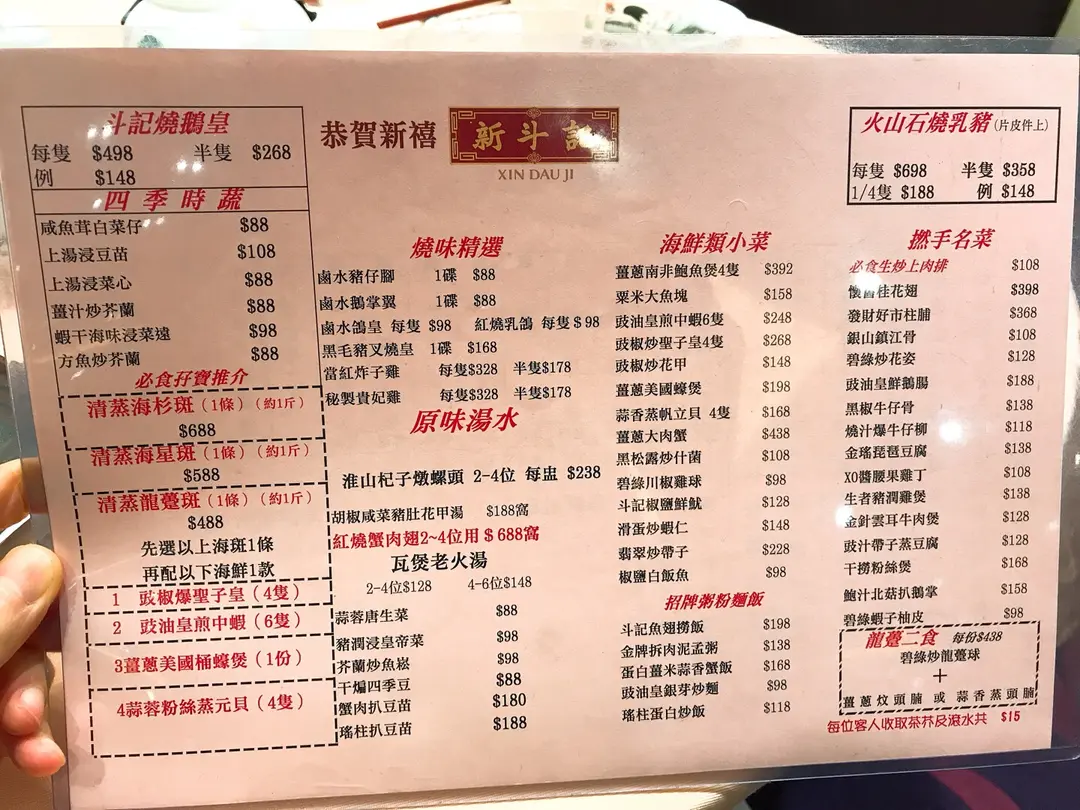 斗記燒鵝皇
每隻 $498 半隻 $268
例 $148
四季時蔬
咸魚茸白菜仔 $88
上湯浸豆苗 $108
上湯浸菜心 $88
薑汁炒芥蘭 $88
蝦干海味浸菜遠 $98
方魚炒芥蘭 $88
必食孖寶推介
清蒸海杉斑（1條）（約1斤）
$688
清蒸海星斑（1條）（約1斤）
$588
清蒸龍躉斑（1條）（約1斤）
$488
先選以上海斑1條
再配以下海鮮1款
1 豉椒爆聖子皇（4隻）
2 豉油皇煎中蝦（6隻）
3薑蔥美國桶蠔煲（1份）
4蒜蓉粉絲蒸元貝（4隻）
恭賀新禧
新斗記
XIN DAU JI
燒味精選
鹵水豬仔腳 1碟 $88
鹵水鵝掌翼 1碟 $88
鹵水鴿皇 每隻 $98 紅燒乳鴿 每隻$98
黑毛豬叉燒皇 1碟 $168
當紅炸子雞 每隻$328 半隻$178
秘製貴妃雞 每隻$328 半隻$178
原味湯水
淮山杞子燉螺頭 2-4位 每盅 $238
胡椒咸菜豬肚花甲湯 $188窩
紅燒蟹肉翅2~4位用$688窩
瓦煲老火湯
2-4位$128 4-6位$148
蒜蓉唐生菜 $88
豬潤浸皇帝菜 $98
芥蘭炒魚崧 $98
干煸四季豆 $88
蟹肉扒豆苗 $180
瑤柱扒豆苗 $188
海鮮類小菜
薑蔥南非鮑魚煲4隻 $392
粟米大魚塊 $158
豉油皇煎中蝦6隻 $248
豉椒炒聖子皇4隻 $268
豉椒炒花甲 $148
薑蔥美國蠔煲 $198
蒜香蒸帆立貝 4隻 $168
薑蔥大肉蟹 $438
黑松露炒什菌 $108
碧綠川椒雞球 $98
斗記椒鹽鮮魷 $128
滑蛋炒蝦仁 $148
翡翠炒帶子 $228
椒鹽白飯魚 $98
招牌粥粉麵飯
斗記魚翅撈飯 $198
金牌拆肉泥孟粥 $138
蛋白薑米蒜香蟹飯 $168
豉油皇銀芽炒麵 $98
瑤柱蛋白炒飯 $118
火山石燒乳豬（片皮件上）
每隻 $698 半隻 $358
1/4隻 $188 例 $148
撚手名菜
必食生炒上肉排 $108
懷舊桂花翅 $398
發財好市柱脯 $368
銀山鎮江骨 $108
碧綠炒花姿 $128
豉油皇鮮鵝腸 $188
黑椒牛仔骨 $138
燒汁爆牛仔柳 $118
金瑤琵琶豆腐 $138
XO醬腰果雞丁 $108
生者豬潤雞煲 $138
金針雲耳牛肉煲 $128
豉汁帶子蒸豆腐 $128
干撈粉絲煲 $168
鮑汁北菇扒鵝掌 $158
碧綠蝦子柚皮 $98
龍躉二食 每份$438
碧綠炒龍躉球
+
薑蔥炆頭腩 或 蒜香蒸頭腩
每位客人收取茶芥及滾水共 $15